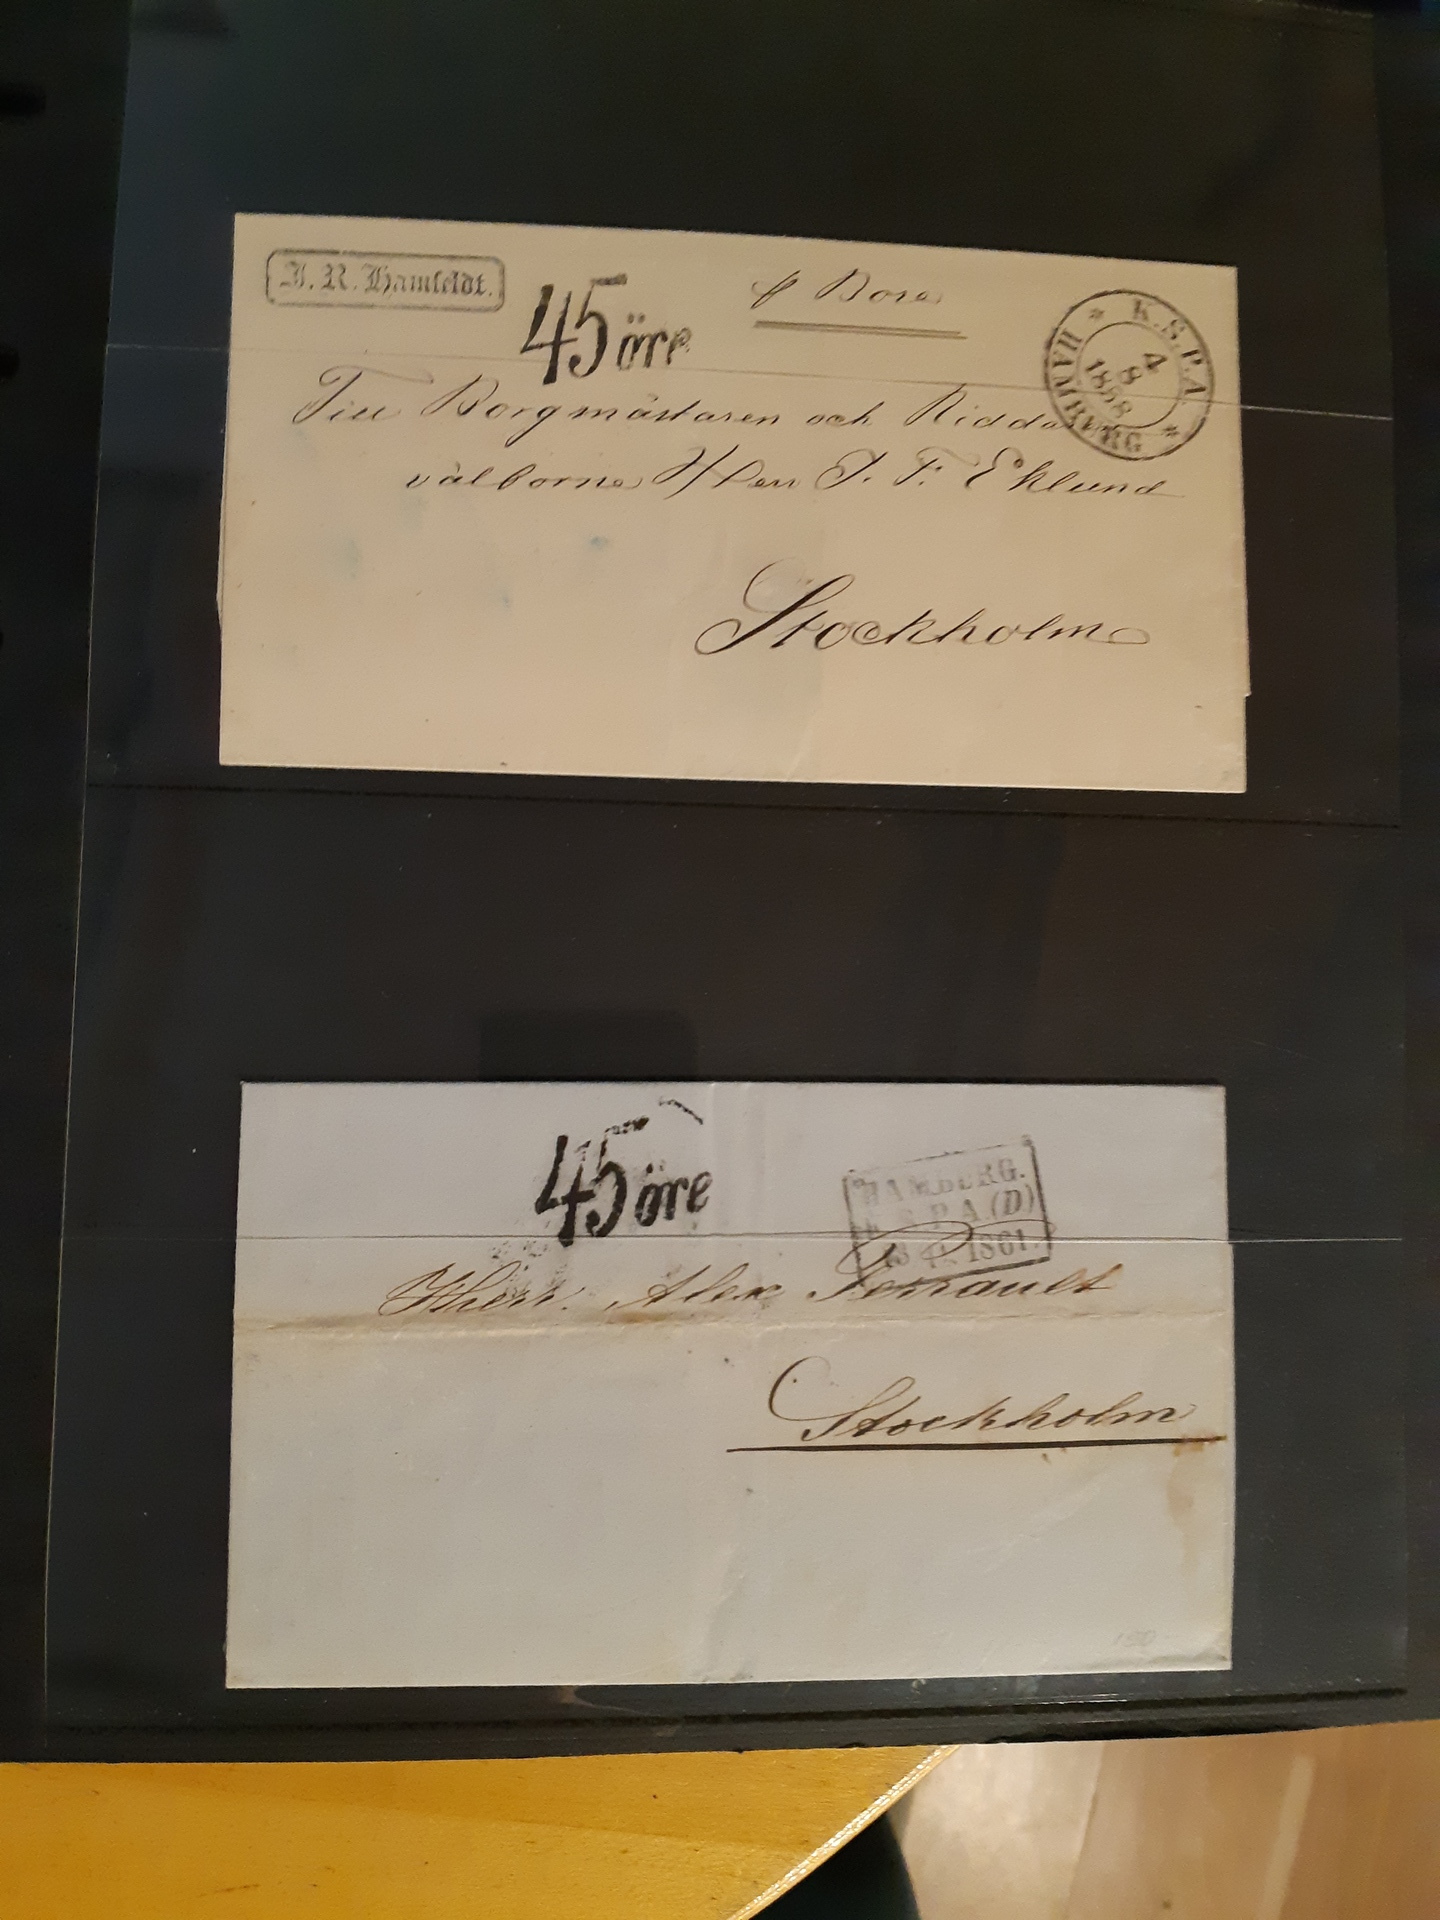 J. R. Hamfeldt.
45 öre
p Bore
* K.S.P.A. *
HAMBURG
4
8
1858
Till Borgmästaren och Riddaren
välborne Herr J. F. Eklund
Stockholm
45 öre
HAMBURG.
K. S. P. A. (D)
1861.
Herr. Alex Perrault
Stockholm